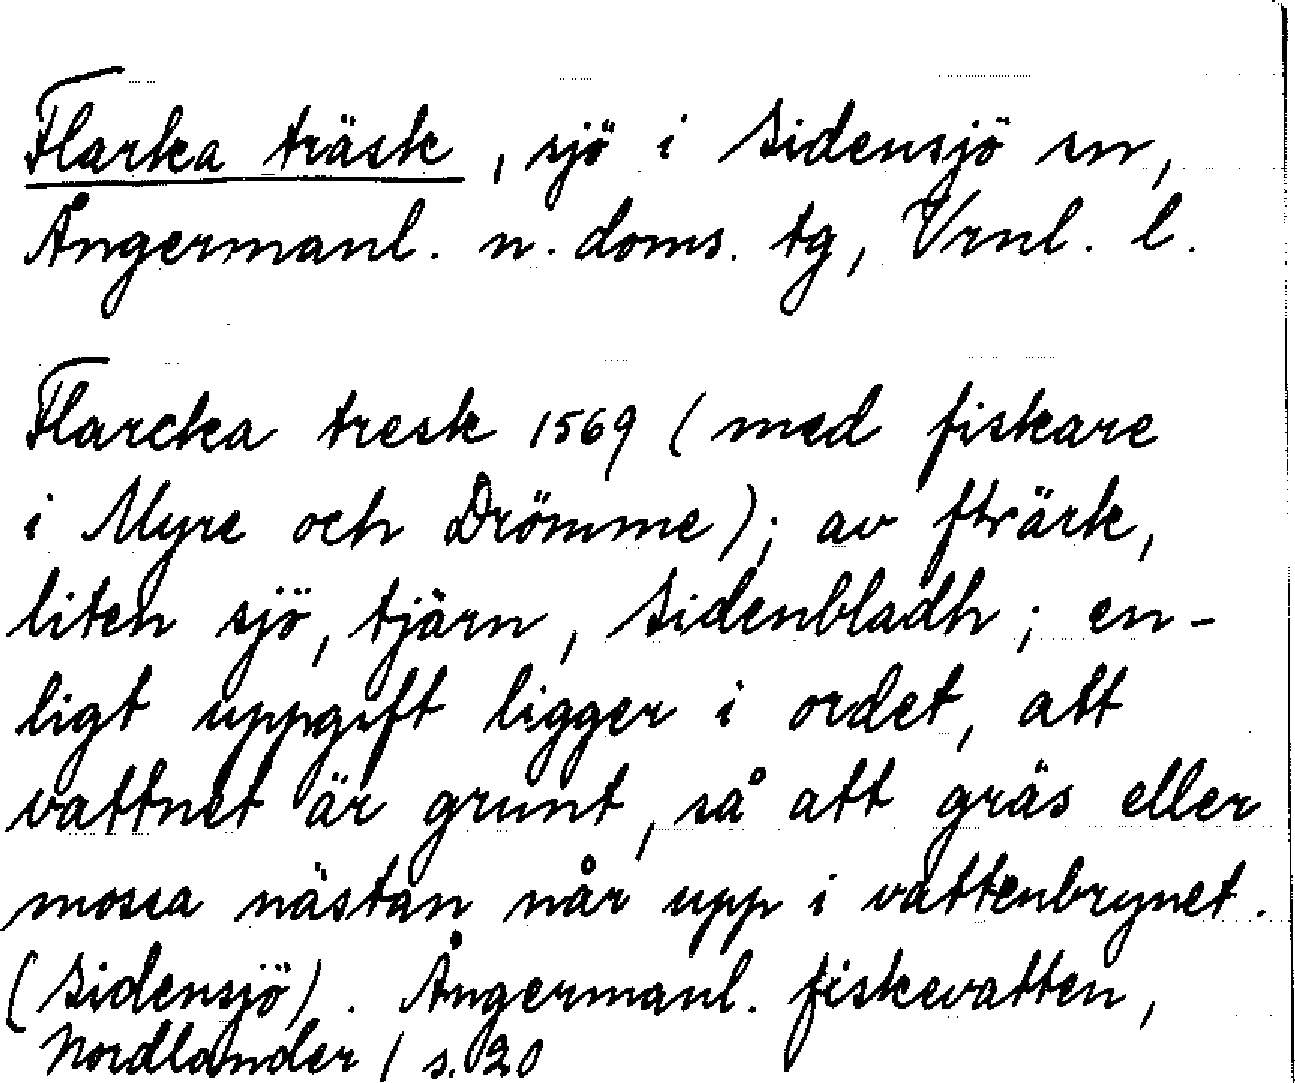 Flarka träsk, sjö i Sidensjö sn,
Ångermanl. n. doms. tg, Vrnl. l.
Flarcka tresk 1569 (med fiskare
i Myre och Drömme); av
liten sjö, tjärn, Sidenbladh; en-
ligt uppgift ligger i ordet, att
vattnet är grunt, så att gräs eller
mossa nästan når upp i vattenbrynet.
(Sidensjö). Ångermanl. fiskevatten,
Nordlander / s. 20